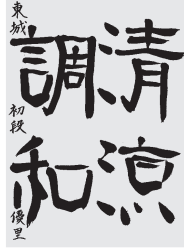 清涼
調和
東城 初段 優里